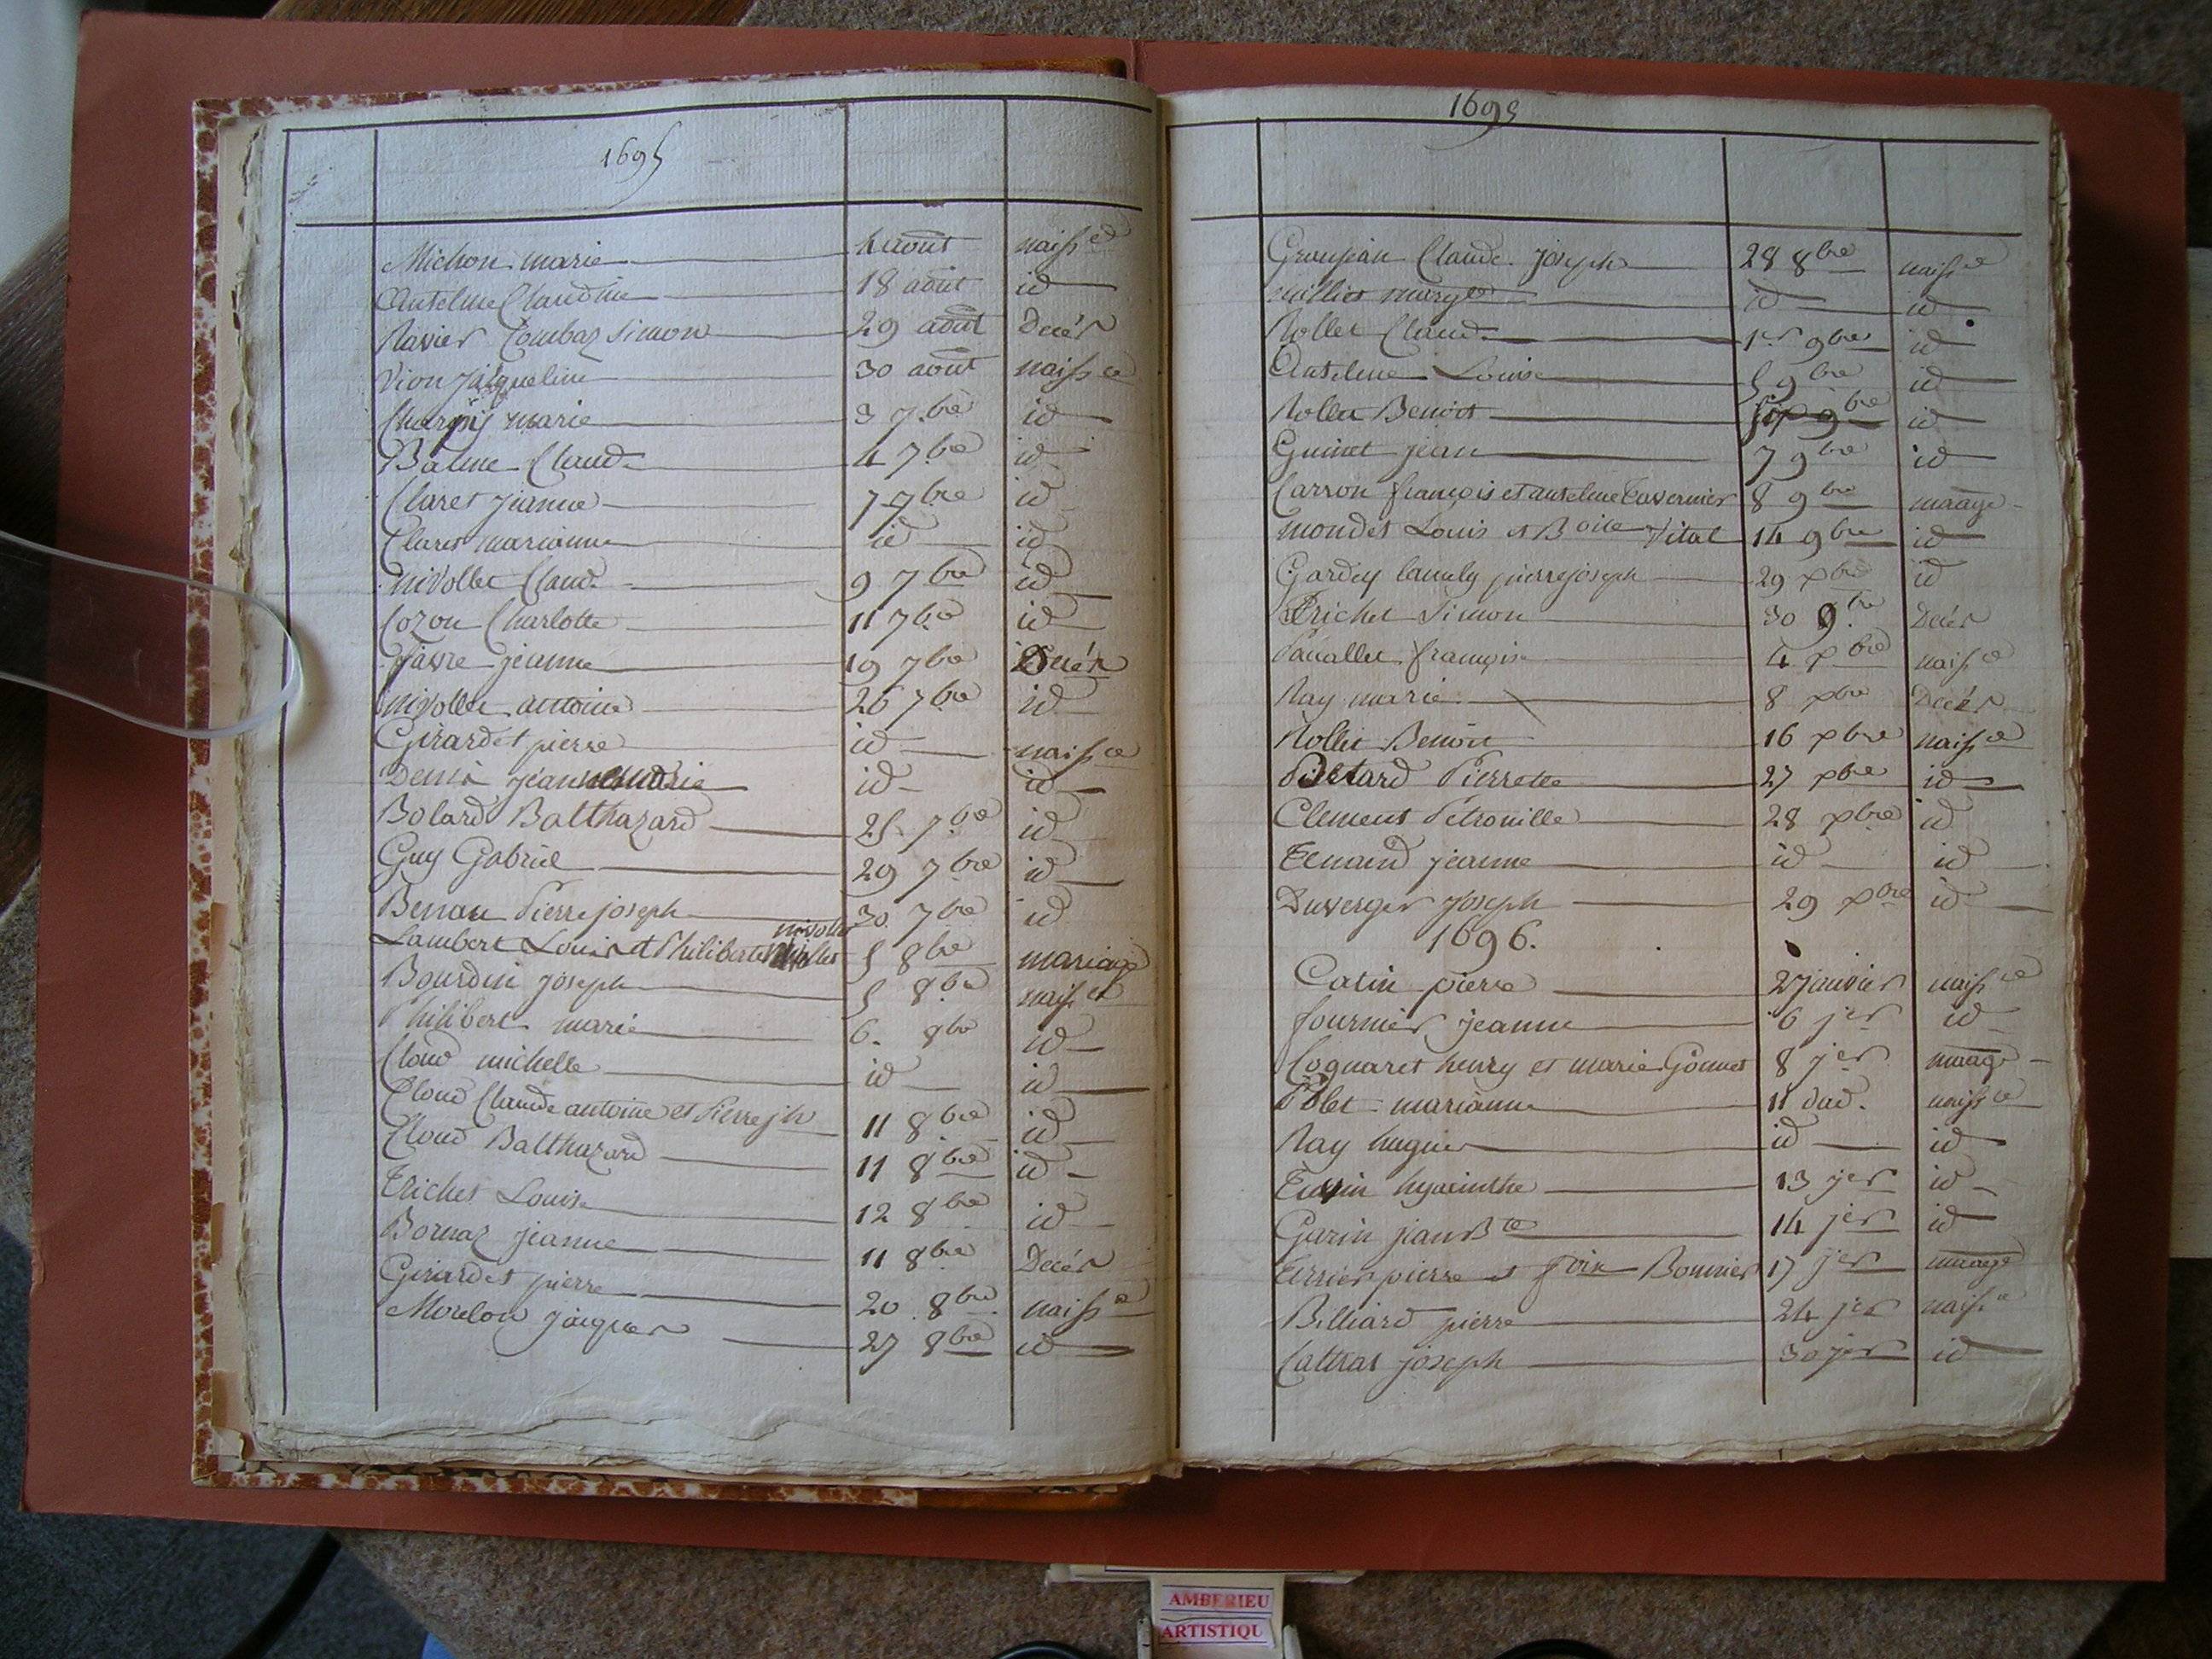 1695
Michon marie 4 août naiss ce
Anselme Claudine 18 août id
Ravier Tombaz Simon 29 août Décès
Vion Jacqueline 30 août naiss ce
marie 3 7.bre id
Balme Claude 4 7.bre id
Claret jeanne 7 7bre id
Claret marianne id id
nivollet Claude 9 7bre id
Cozon Charlotte 11 7bre id
favre jeanne 19 7bre Décès
nivollet antoine 26 7bre id
Girardet pierre id naiss ce
jeanne marie id id
Bolard Balthazard 25 7.bre id
Guy Gabriel 29 7bre id
Pierre joseph 30 7bre id
nivollet
Lambert Louis et Philiberte 5 8bre mariage
Bourdin joseph 5 8bre naiss ce
Philibert marie 6. 8bre id
Cloud michelle id id
Cloud Claude antoine et Pierre jh 11 8bre id
Cloud Balthazard 11 8bre id
Trichet Louise 12 8bre id
Bornaz jeanne 11 8bre Décès
Girardet pierre 20 8bre naiss ce
Morelon jacques 27 8bre id
1695
Grosjean Claude joseph 28 8bre naiss ce
id id
Rollet Claude 1er 9bre id
Anselme Louise 5 9bre id
Rollet Benoit 9bre id
Guinet jean 7 9bre id
Carron françois et anselme Tavernier 8 9bre maage
mondet Louis et Vital 14 9bre id
Gardey pierre joseph 29 id
Trichet Simon 30 9.bre Décès
françoise 4 xbre naiss ce
Ray marie 8 xbre Décès
Rollet Benoit 16 xbre naiss ce
Pierrette 27 xbre id
Clement Petronille 28 xbre id
Tenand jeanne id id
Duverger joseph 29 xbre id
1696.
Catin pierre 2 janvier naiss ce
fournier jeanne 6 jer id
Coquaret henry et marie Gonnet 8 jer maage
marianne 11 dud. naiss ce
Ray id id
hyacinthe 13 jer id
Garin jean Bte 14 jer id
Terrier pierre et Bonnier 17 jer maage
Billiard pierre 24 jer naiss ce
joseph 30 jer id
AMBERIEU
ARTISTIQU